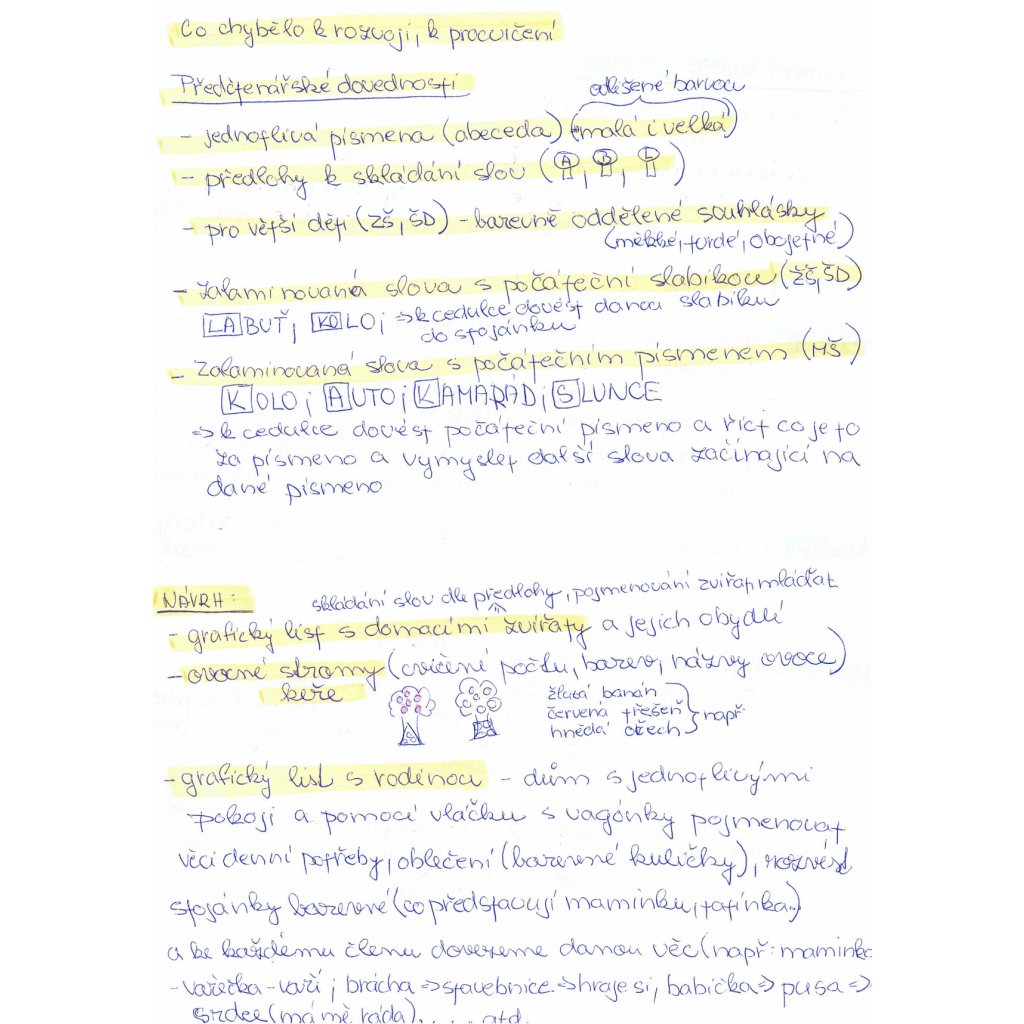 Co chybělo k rozvoji, k procvičení
Předčtenářské dovednosti
odlišené barvou
- jednotlivá písmena (abeceda) (malá i velká)
- předlohy k skládání slov (A, B, L)
- pro větší děti (ZŠ, ŠD) - barevně oddělené souhlásky
(měkké, tvrdé, obojetné)
- zalaminovaná slova s počáteční slabikou (ZŠ, ŠD)
LABUŤ, KOLO, => k cedulce dovést danou slabiku
do stojánku
- Zalaminovaná slova s počátečním písmenem (MŠ)
KOLO, AUTO, KAMARÁD, SLUNCE
=> k cedulce dovést počáteční písmeno a říct co je to
za písmeno a vymyslet další slova začínající na
dané písmeno
NÁVRH:
skládání slov dle předlohy, pojmenování zvířat, mláďat
- grafický list s domacími zvířaty a jejich obydlí
- ovocné stromy (cvičení počtu, barev, názvy ovoce)
keře
žlutá banán
červená třešeň
hnědá ořech
např.
- grafický list s rodinou - dům s jednotlivými
pokoji a pomocí vláčku s vagónky pojmenovat
věci denní potřeby, oblečení (barevné kuličky), rozvést
stojánky barevné (co představují maminku, tatínka..)
a ke každému členu dovezeme danou věc (např: maminka
- vařečka - vaří, brácha => stavebnice => hraje si, babička => pusa =>
srdce (má mě ráda)...... atd.